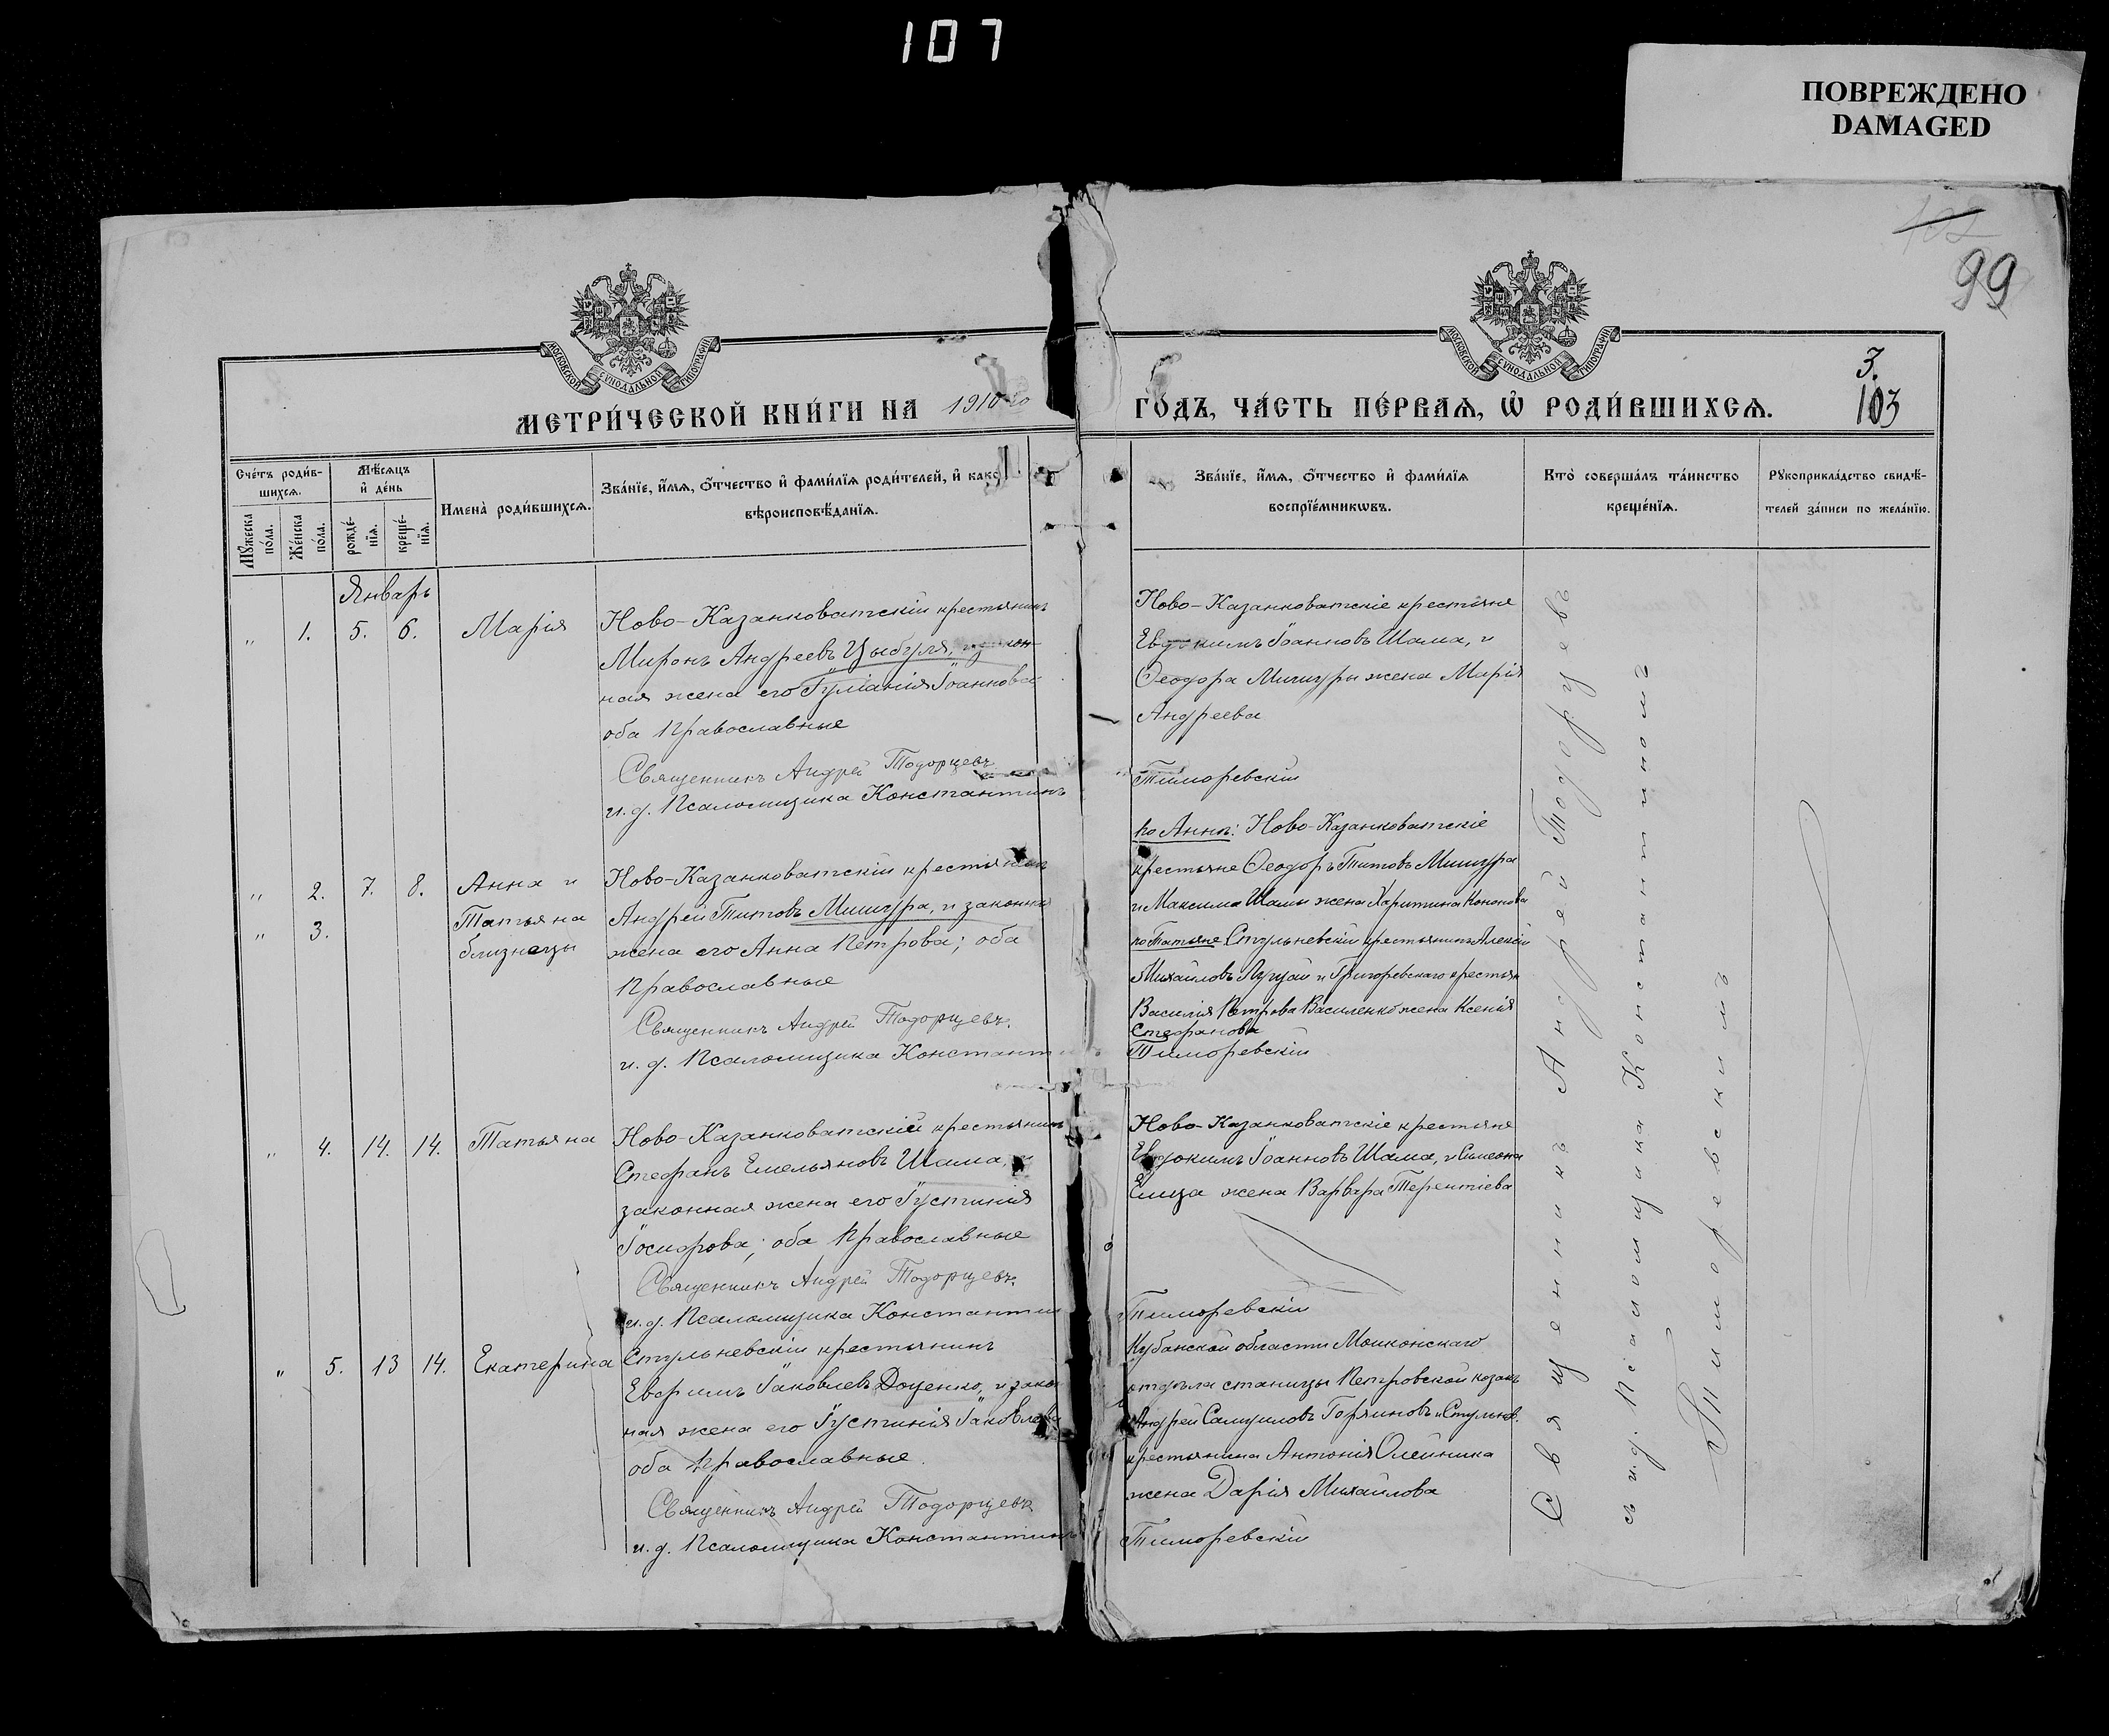 107
ПОВРЕЖДЕНО
DAMAGED
102
99
МОСКОВСКОЙ СѴНОДАЛЬНОЙ ТИПОГРАФІИ
МОСКОВСКОЙ СѴНОДАЛЬНОЙ ТИПОГРАФІИ
3.
103
МЕТРИ́ЧЕСКОЙ КНИ́ГИ НА 1910 го ГО́ДЪ, ЧА́СТЬ ПЕ́РВАѦ, Ѡ҆ РОДИ́ВШИХСѦ.
Сче́тъ роди́в-
шихсѧ.
Мѣ́сѧцъ
и҆ де́нь
Мꙋ́жеска
по́ла.
Же́нска
по́ла.
рожде́-
нїѧ.
креще́-
нїѧ.
Имена̀ роди́вшихсѧ.
Зва́нїе, и҆́мѧ, ѻ҆́тчество и҆ фами́лїѧ роди́телей, и҆ како́
вѣроисповѣ́данїѧ.
Зва́нїе, и҆́мѧ, ѻ҆́тчество и҆ фами́лїѧ
воспрїе́мникѡвъ.
Кто̀ соверша́лъ та́инство
креще́нїѧ.
Рꙋкоприкла́дство свидѣ́-
телей за́писи по жела́нїю.
Январь
„ 1. 5. 6. Марія
Ново-Казанковатскій крестьянинъ
Миронъ Андреевъ Цыбуля, и закон-
ная жена его Іуліанія Іоаннова
оба Православные
Священникъ Андрей Тодорцевъ
и. д. Псаломщика Константинъ
Ново-Казанковатскіе крестьяне
Евдокимъ Іоанновъ Шама, и
Ѳеодора Мишуры жена Марія
Андреева
Тиморевскій
„ 2. 7. 8. Анна и
„ 3. Татьяна
близнецы
Ново-Казанковатскій крестьянинъ
Андрей Титовъ Мишура, и законная
жена его Анна Петрова; оба
Православные
Священникъ Андрей Тодорцевъ.
и. д. Псаломщика Константинъ
по Аннѣ: Ново-Казанковатскіе
крестьяне Ѳеодоръ Титовъ Мишура
и Максима Шамы жена Харитина Кононова
по Татьяне Стульневскій крестьянинъ Алексій
Михайловъ и Григоревскаго крестьян
Василія Петрова Василенко жена Ксенія
Стефанова
Тиморевскій
„ 4. 14. 14. Татьяна
Ново-Казанковатскій крестьянинъ
Стефанъ Емельяновъ Шама, и
законная жена его Іустинія
Іосифова; оба Православные
Священникъ Андрей Тодорцевъ.
и. д. Псаломщика Константин
Ново-Казанковатскіе крестьяне
Евдокимъ Іоанновъ Шама, и Симеона
жена Варвара Терентіева
Тиморевскій
„ 5. 13 14. Екатерина
Стульневскій крестьянинъ
Евфимъ Іаковлевъ Доценко, и закон
ная жена его Іустинія Іаковлева
оба Православные.
Священникъ Андрей Тодорцевъ
и. д. Псаломщика Константинъ
Кубанской области
отдѣла станицы Петровской козакъ
Андрей Самуиловъ и Стульнев.
крестьянина Антонія Олейника
жена Дарія Михайлова
Тиморевскій
Священникъ Андрей Тодорцевъ
съ и. д. Псаломщика Константиномъ
Тиморевскимъ